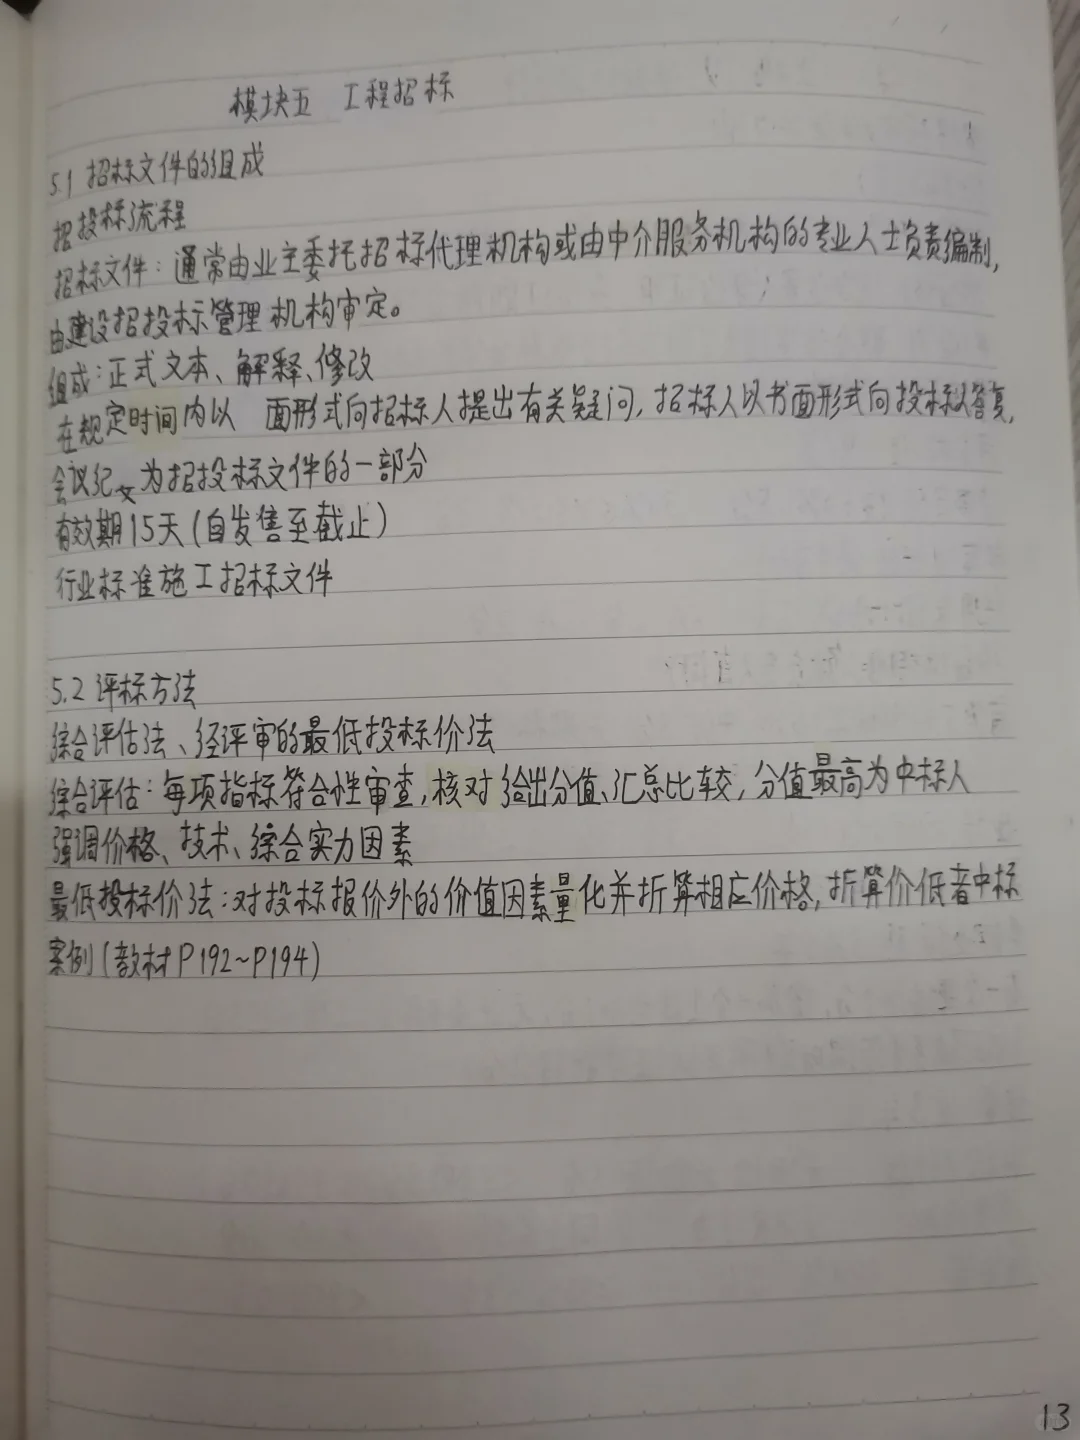 模块五 工程招标
5.1 招标文件的组成
招投标流程
招标文件：通常由业主委托招标代理机构或由中介服务机构的专业人士负责编制，
由建设招投标管理机构审定。
组成：正式文本、解释、修改
在规定时间内以 面形式向招标人提出有关疑问，招标人以书面形式向投标人答复，
会议纪文为招投标文件的一部分
有效期15天(自发售至截止)
行业标准施工招标文件
5.2 评标方法
综合评估法、经评审的最低投标价法
综合评估：每项指标符合性审查，核对给出分值、汇总比较，分值最高为中标人
强调价格、技术、综合实力因素
最低投标价法：对投标报价外的价值因素量化并折算相应价格，折算价低者中标
案例(教材P192~P194)
13